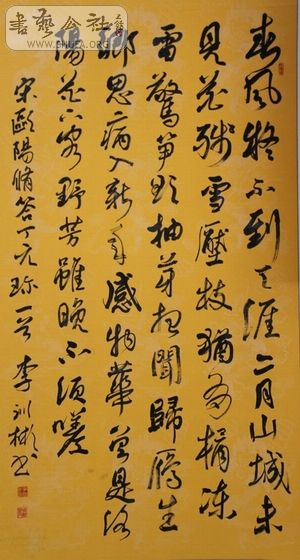 書藝公社
春風疑不到天涯二月山城未
見花殘雪壓枝猶有橘凍
雷驚笋欲抽芽夜聞歸鴈生
鄉思病入新年感物華曾是洛
陽花下客野芳雖晚不須嗟
宋歐陽脩答丁元珍一首 李訓彬書